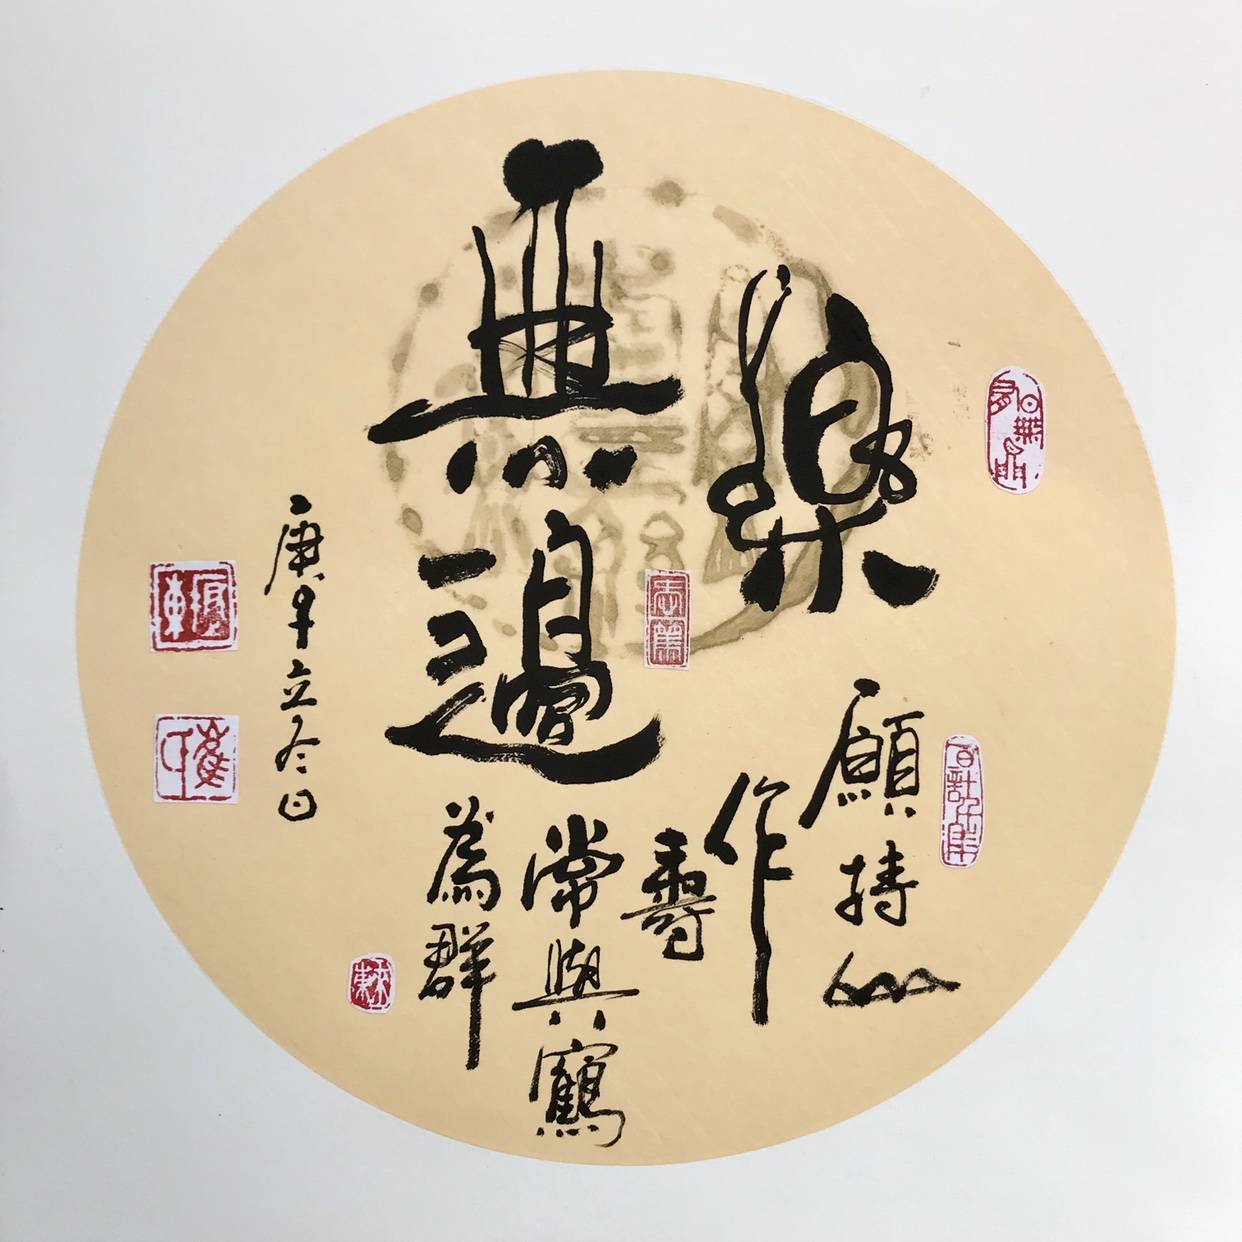 樂
無邊
願持山
作
壽
常與鶴
為群
庚子立冬日